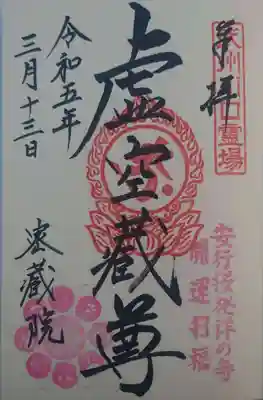 奉拝
霊場
安行桜発祥の寺
開運招福
虚空蔵尊
令和五年
三月十三日